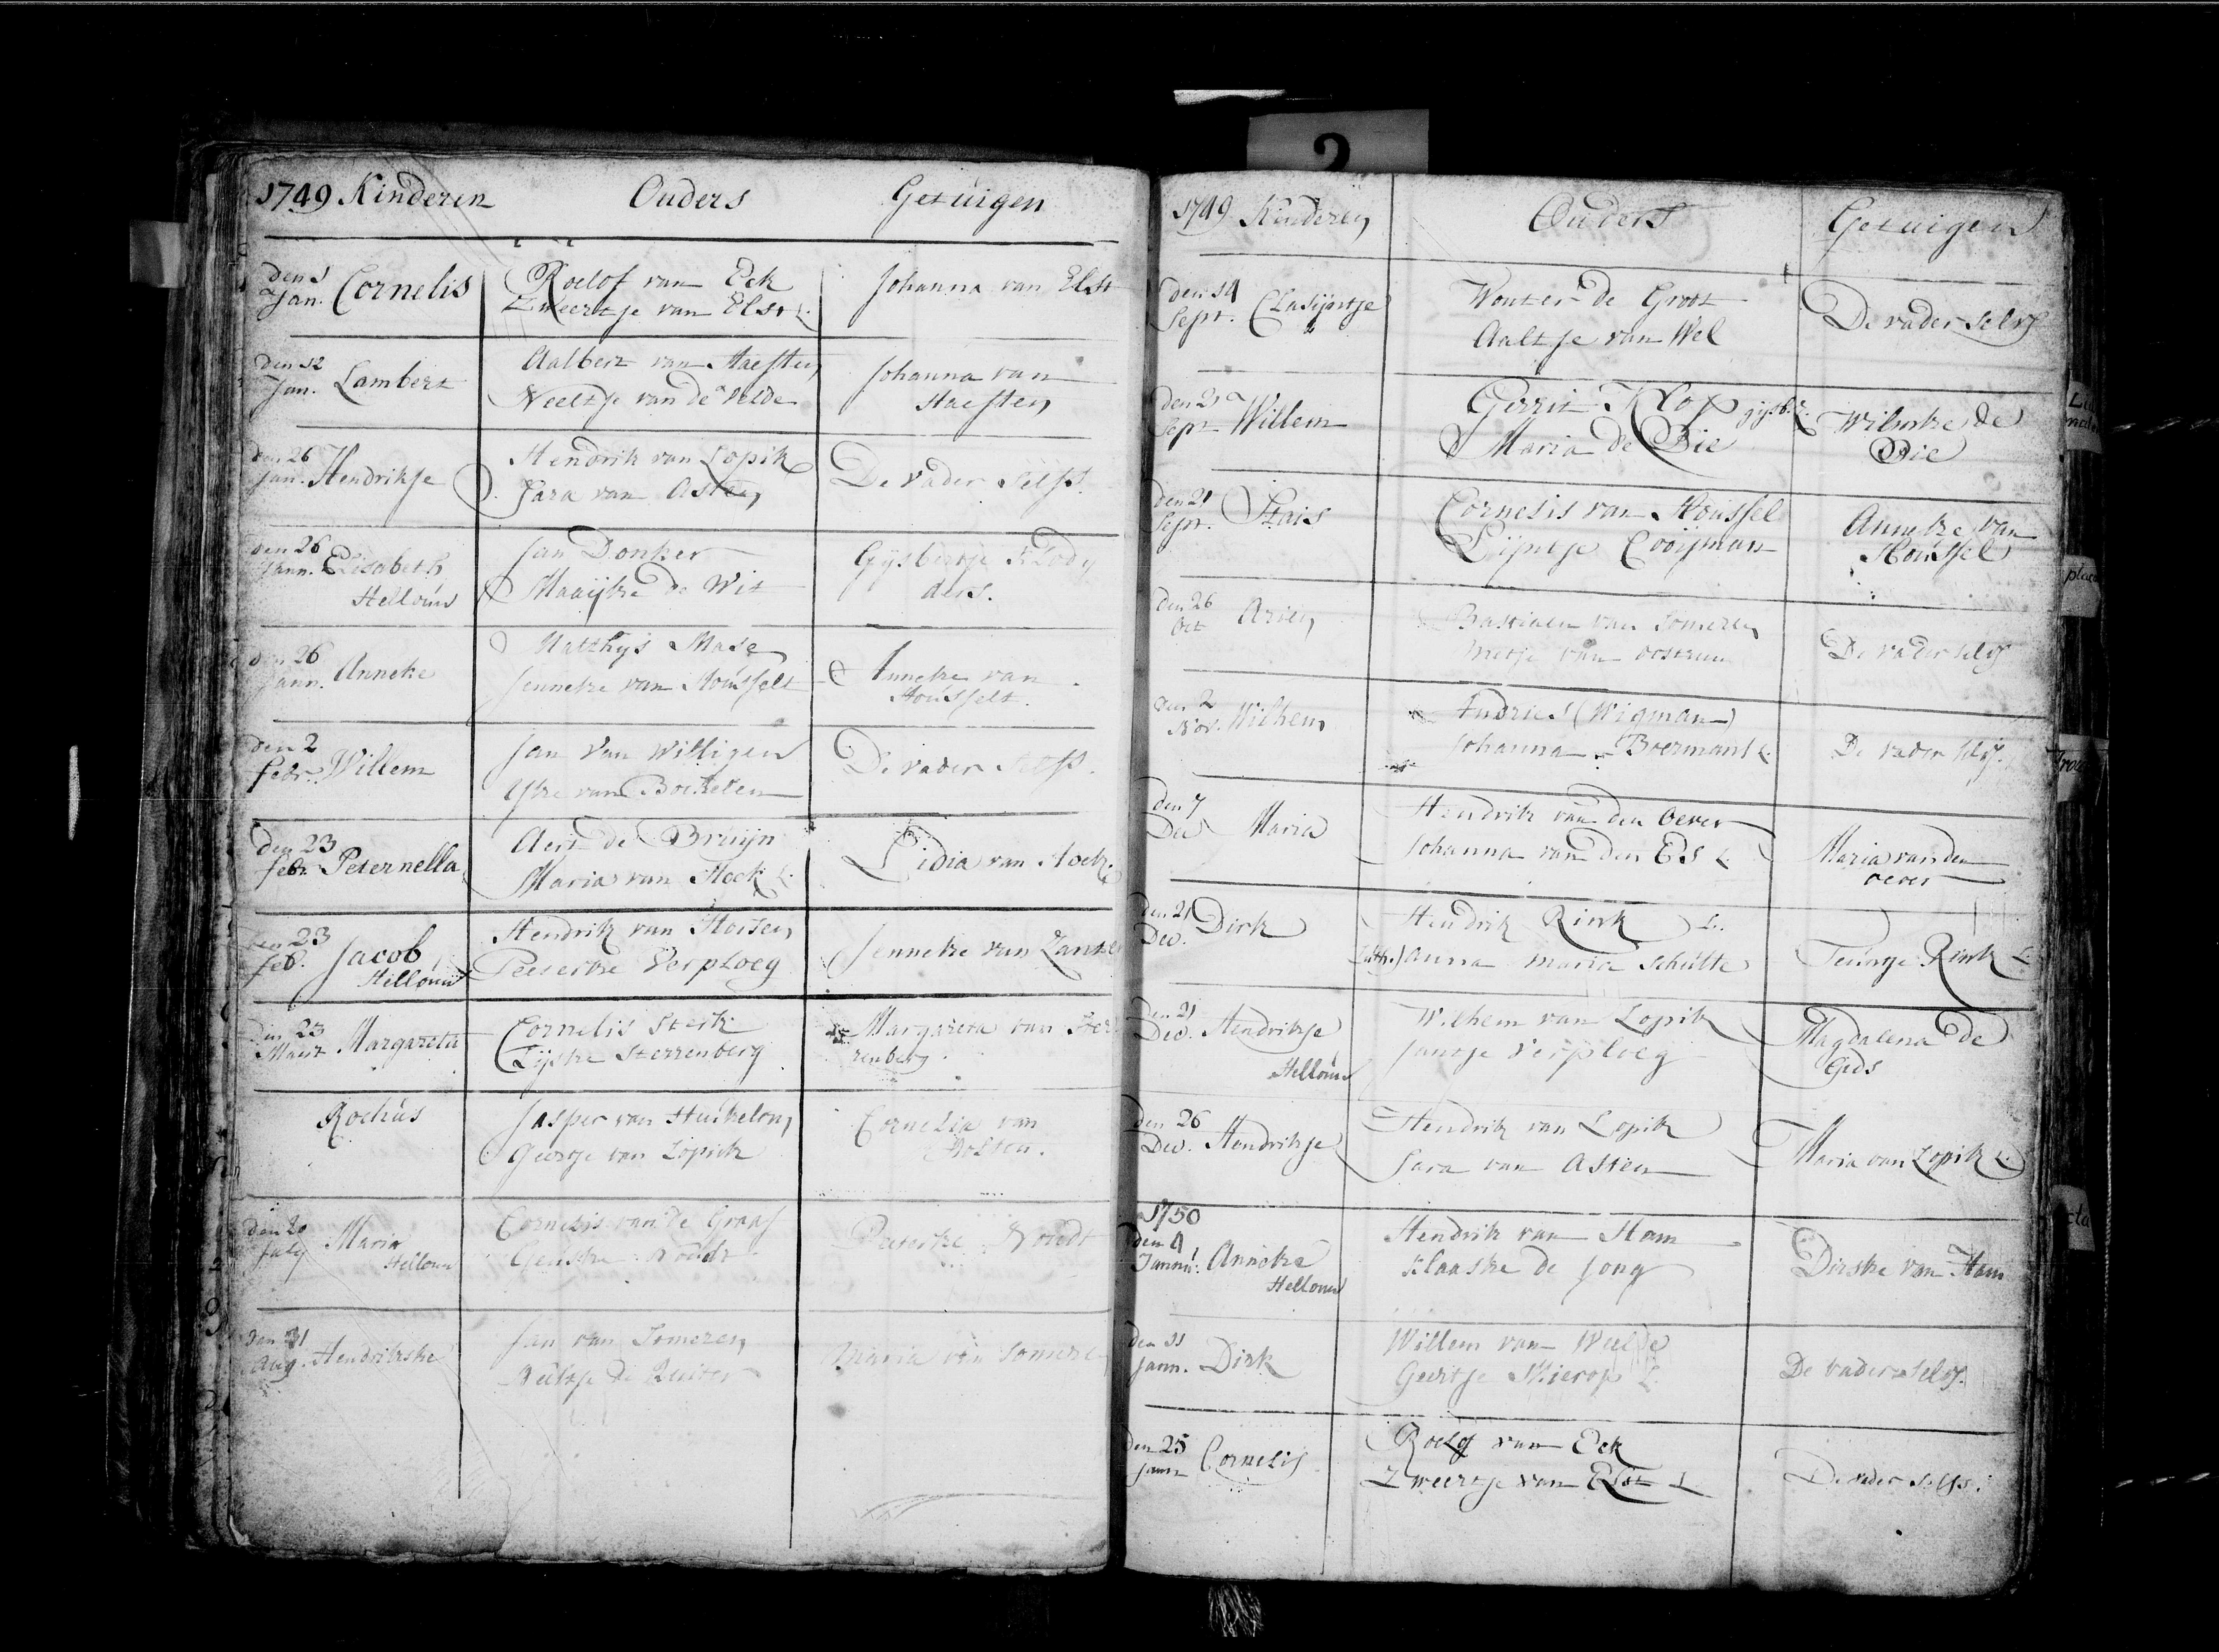 1749 Kinderen Ouders Getuigen
den 1 Jan. Cornelis
Roelof van Eck
Zweertje van Elst L.
Johanna van Elst
den 12 Jan. Lambert
Aalbert van Haeften
Neeltje van de Velde
Johanna van
Haeften
den 26 Jan. Hendrikje
Hendrik van Lopik
Sara van Asten
De vader selfs.
den 26 Jann. Elisabeth
Hellouw
Jan Donker
Maaijke de Wit
Gijsbertje
den 26 Jann. Anneke
Matthys Mase
Jenneke van Housselt
Anneke van
Housselt.
den 2 febr. Willem
Jan van Willigen
van
De vader selfs.
den 23 febr. Peternella
Aert de Bruijn
Maria van Hoek L.
Lidia van Hoek.
den 23 feb. Jacob
Hellouw
Hendrik van
Peeterke Verploeg
Jenneke van
den 23 Maert Margareta
Cornelis Sterk
Lijske Sterrenberg
Margareta van Ster
renberg.
Rochus
Jasper van Heukelom
Geertje van Lopik
Cornelia van
den 20 July Maria
Hellouw
Cornelis van de Graaf
Peeterke
den 31 Aug. Hendrikske
Jan van Someren
Neeltje de Ruiter
Maria van Somere
1749 Kinderen Ouders Getuigen
den 14 Sept. Clasijntje
Wouter de Groot
Aaltje van Wel
De vader selvs
den 21 Sept. Willem
Gerrit Klop gijsb.z.
Maria de Bie
Wilmke de
Bie
den 21 Sept. Stais
Cornelis van Houssel
Lijntje Cooijman
Anneke van
Houssel
den 26 Oct Arien
Bastiaen van Someren
van Oostrum
De vader selvs
den 2 Nov. Wilhem
Andries (Wigman)
Johanna Boermans L.
De vader selvs.
den 7 Dec Maria
Hendrik van den Oever
Johanna van den Es L.
Maria van den
Oever
den 21 Dec. Dirk
Hendrik Rink L.
(Luth.) Anna Maria Schulte
Teuntje Rink L.
den 21 Dec. Hendrikje
Hellouw
Wilhem van Lopik
Jantje Verploeg
Magdalena de
Gids
den 26 Dec. Hendrikje
Hendrik van Lopik
Sara van Asten
Maria van Lopik L.
1750
den 4 Jannu: Anneke
Hellouw
Hendrik van Ham
Klaaske de Jong
Dirske van Ham
den 11 Jann. Dirk
Willem van Weelde
Geertje Mierop L.
De vader selvs.
den 25 Jann Cornelis
Roelof van Eck
Zweertje van Elst L
De vader selfs.